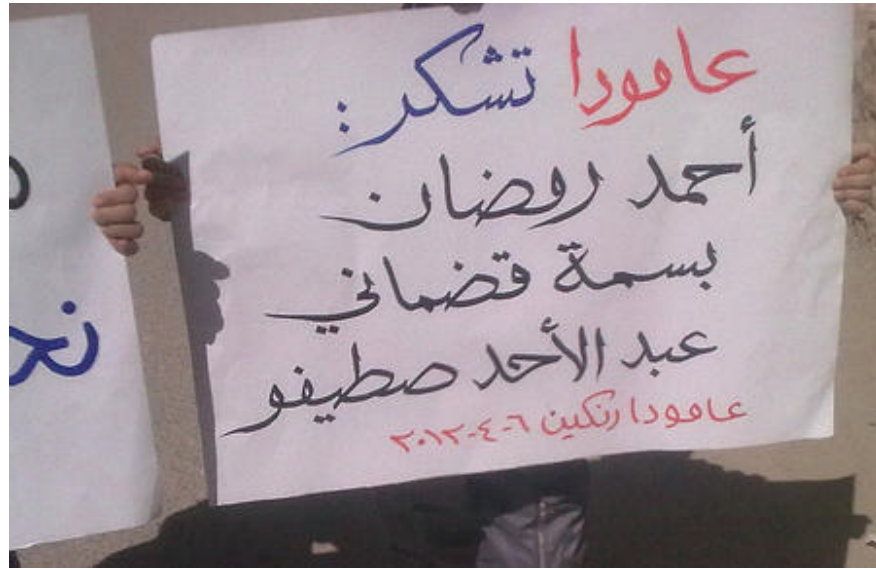 عامودا تشكر :
أحمد رمضان
بسمة قضماني
عبد الأحد صطيفو
عامودا رنكين ٦-٤-٢٠١٢